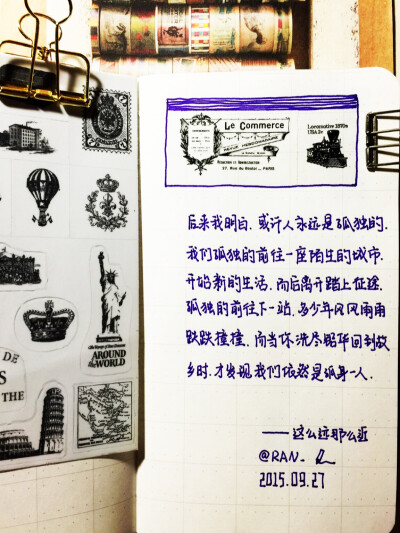 Le Commerce
REVUE HEBDOMADAIRE
27, Rue du Sentier _ PARIS
Locomotive 1870s
USA 2c
后来我明白，或许人永远是孤独的，
我们孤独的前往一座陌生的城市，
开始新的生活，而后离开踏上征途，
孤独的前往下一站，多少年风风雨雨
跌跌撞撞，而当你洗尽铅华回到故
乡时，才发现我们依然是孤身一人．
——这么远那么近
@RAN_
2015.09.27
AROUND
THE WORLD
DE
THE